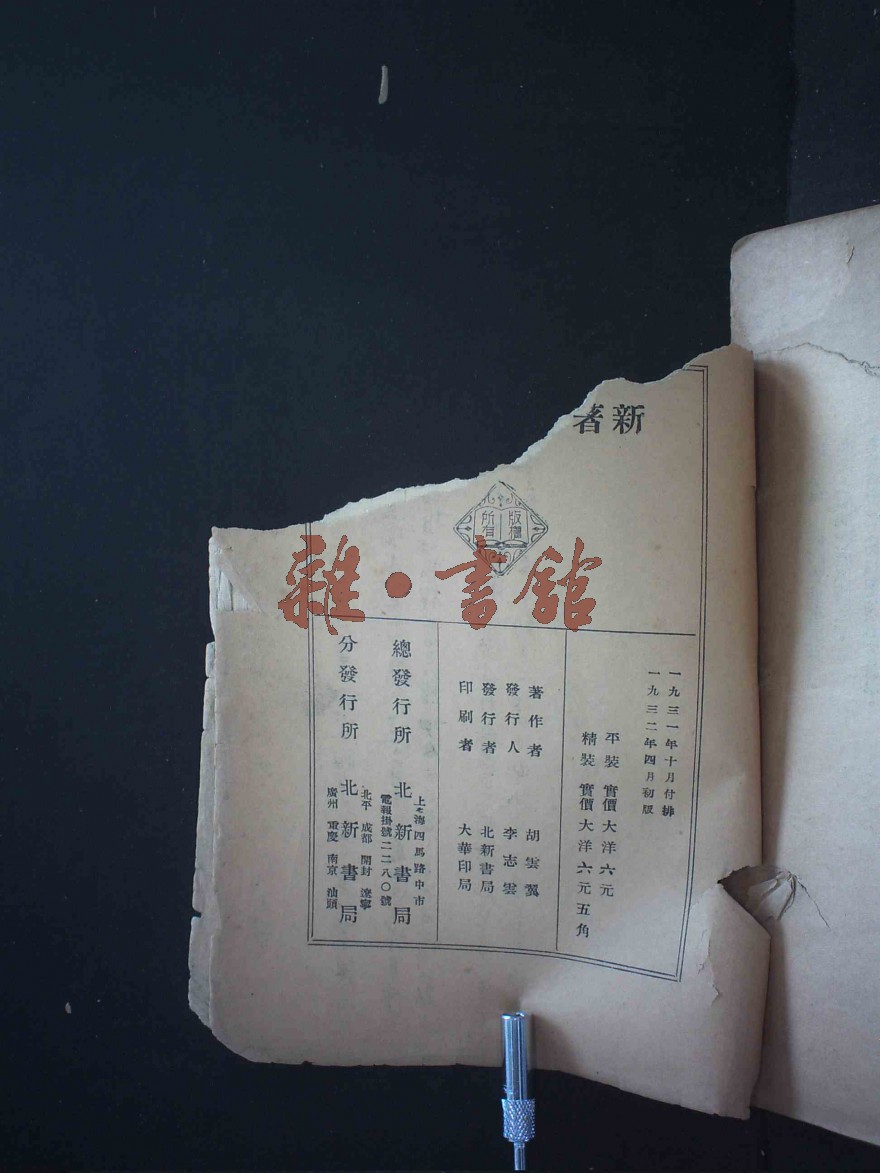 新
著
版權
所有
一九三一年十月付排
一九三二年四月初版
平裝 實價大洋六元
精裝 實價大洋六元五角
著作者 胡雲翼
發行人 李志雲
發行者 北新書局
印刷者 大華印局
總發行所 北新書局
上海四馬路中市
電報掛號二二八〇號
分發行所 北新書局
北平 成都 開封 遼寧
廣州 重慶 南京 汕頭
雜·書館